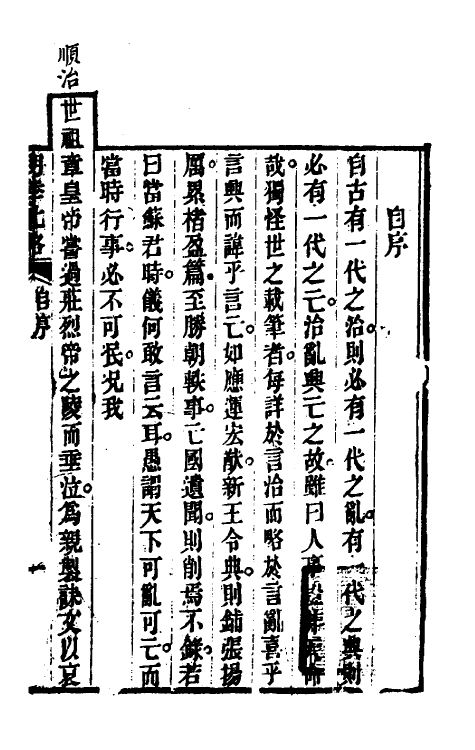 自序
自古有一代之治。則必有一代之亂。有一代之興則
必有一代之亡。治亂興亡之故。雖曰人事
哉。獨怪世之載筆者。每詳於言治而略於言亂。喜乎
言興而諱乎言亡。如應運宏猷。新王令典。則鋪張揚
厲。累楮盈篇。至勝朝軼事。亡國遺聞。則削焉不錄。若
曰當蘇君時。儀何敢言云耳。愚謂天下可亂可亡。而
當時行事。必不可泯。況我
順治世祖章皇帝嘗過莊烈帝之陵而垂泣。為親製誄文以哀
明季北略
自序
一